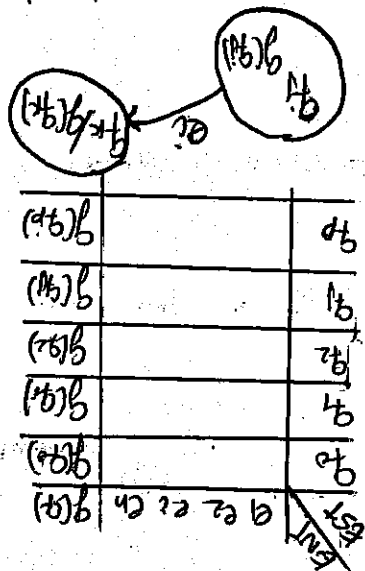 EST ENT e1 e2 ei en g(q)
q0 g(q0)
q1 g(q1)
q2 g(q2)
qj g(qj)
qp g(qp)
qj
g(qj)
ei
qk/g(qk)